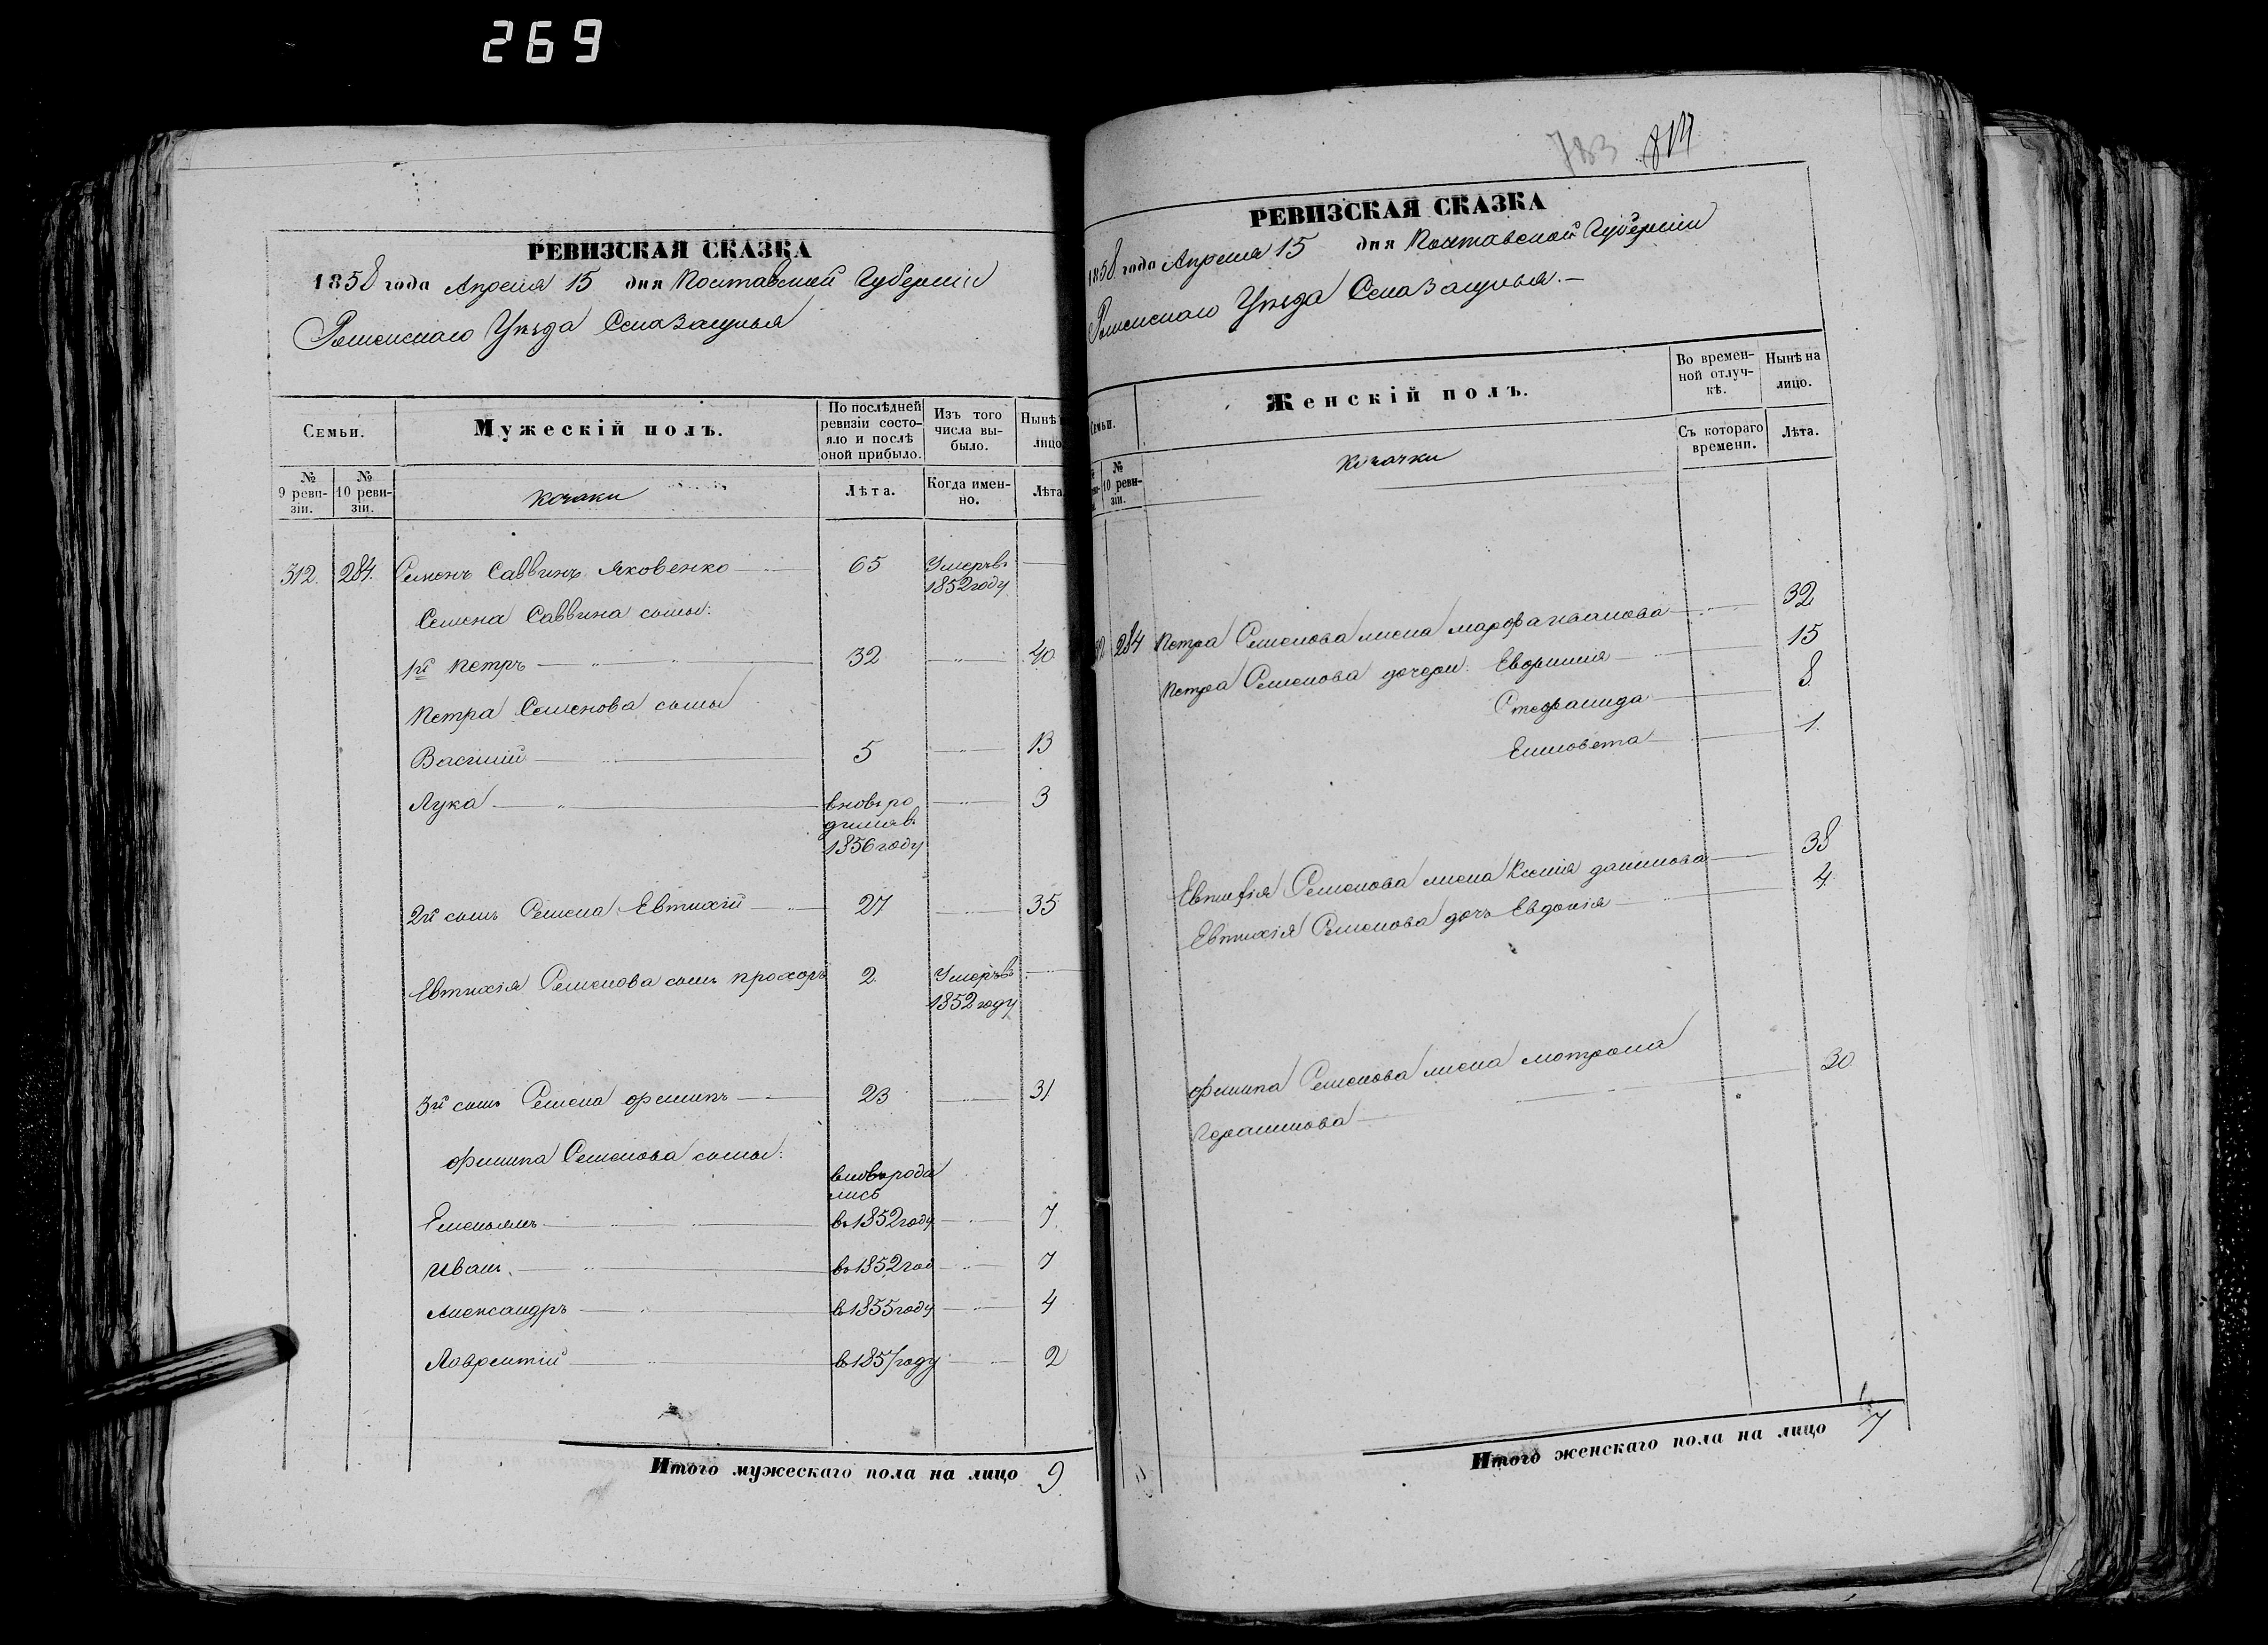 269
РЕВИЗСКАЯ СКАЗКА
1858 года Апреля 15 дня Полтавской Губерніи
Роменскаго Уѣзда
Семьи.
Мужескій полъ.
По послѣдней ревизіи состо-
яло и послѣ
оной прибыло.
Изъ того
числа вы-
было.
Нынѣ
лицо
№
9 реви-
зіи.
№
10 реви-
зіи.
Козаки
Лѣта.
Когда имен-
но.
Лѣта
312. 284. Семенъ Саввинъ Яковенко 65 Умеръ въ
1852 году
Семена Саввина сыны:
1й Петръ 32 40
Петра Семенова сыны
Василий 5 13
Лука вновь ро 3
дился въ
1856 году
2й сынъ Семена Евтихій 27 35
Евтихія Семенова сынъ Прохоръ 2 Умеръ въ
1852 году
3й сынъ Семена Филипъ 23 31
Филипа Семенова сыны:
вновь роди
лись
Емельянъ въ 1852 году 7
Иванъ въ 1852 год 7
Александръ въ 1855 году 4
Лаврентій въ 1857 году 2
Итого мужескаго пола на лицо 9
783 814
РЕВИЗСКАЯ СКАЗКА
1858 года Апреля 15 дня Полтавской Губерніи
Роменскаго Уѣзда
Семьи.
Женскій полъ.
Во времен-
ной отлуч-
кѣ.
Нынѣ на
лицо.
Съ котораго
времени.
Лѣта.
№
10 реви-
зіи.
Козачки
284 Петра Семенова жена Марфа Иванова 32
Петра Семенова дочери: Евфимия 15
Стефанида 8
Елисовета 1
Евтихія Семенова жена Ксенія Данилова 38
Евтихія Семенова дочь Евдокія 4
Филипа Семенова жена Мотрона
Герасимова 30
Итого женскаго пола на лицо 7